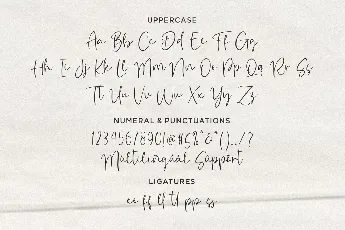 UPPERCASE
Aa Bb Cc Dd Ee Ff Gg
Hh Ii Jj Kk Ll Mm Nn Oo Pp Qq Rr Ss
Tt Uu Vv Ww Xx Yy Zz
NUMERAL & PUNCTUATIONS
1234567890!@#$%^&*()../?
Multilingual Support
LIGATURES
ee ff ll tt pp ss